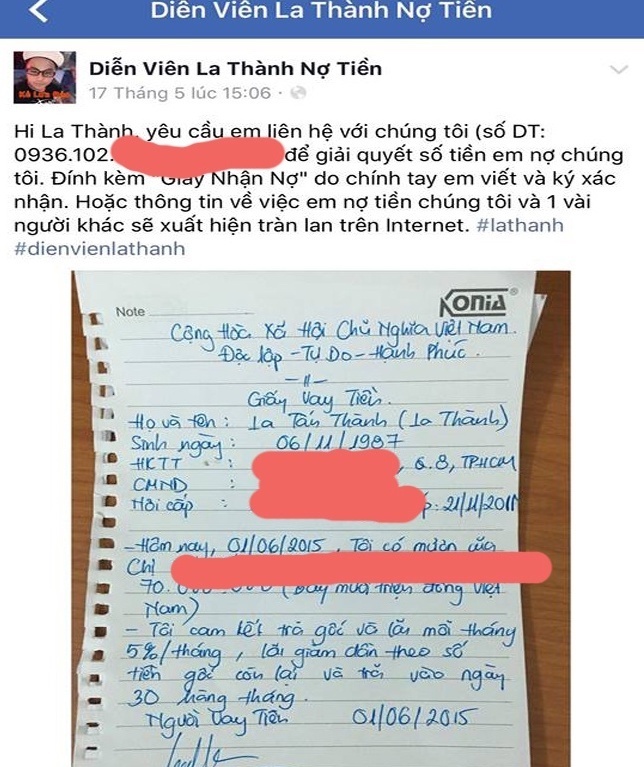 Diễn Viên La Thành Nợ Tiền
Diễn Viên La Thành Nợ Tiền
17 Tháng 5 lúc 15:06 ·
Hi La Thành, yêu cầu em liên hệ với chúng tôi (số DT:
0936.102. để giải quyết số tiền em nợ chúng
tôi. Đính kèm "Giấy Nhận Nợ" do chính tay em viết và ký xác
nhận. Hoặc thông tin về việc em nợ tiền chúng tôi và 1 vài
người khác sẽ xuất hiện tràn lan trên Internet. #lathanh
#dienvienlathanh
Note
KONIA
Cộng Hòa Xã Hội Chủ Nghĩa Việt Nam.
Độc lập - Tự Do - Hạnh Phúc.
-11-
Giấy Vay Tiền.
Họ và tên : La Tấn Thành (La Thành)
Sinh ngày : 06/11/1987
HKTT : , Q.8, TPHCM
CMND :
Nơi cấp : 21/11/2011
- Hôm nay, 01/06/2015, Tôi có mượn của
Chị
70. (Bảy mươi triệu đồng Việt
Nam)
- Tôi cam kết trả gốc và lãi mỗi tháng
5%/tháng, lãi giảm dần theo số
tiền gốc còn lại và trả vào ngày
30 hàng tháng.
Người Vay Tiền 01/06/2015